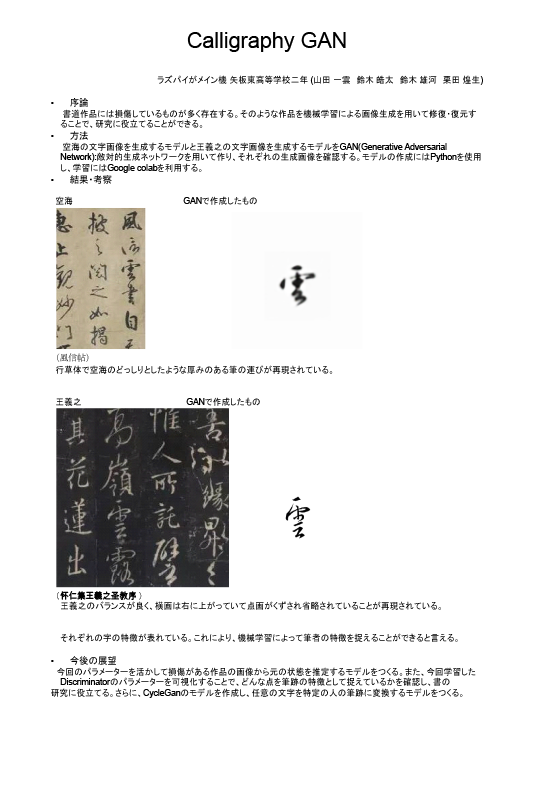 Calligraphy GAN
ラズパイがメイン機 矢板東高等学校二年 (山田 一雲　鈴木 皓太　鈴木 雄河　栗田 煌生)
• 序論
書道作品には損傷しているものが多く存在する。そのような作品を機械学習による画像生成を用いて修復・復元す
ることで、研究に役立てることができる。
• 方法
空海の文字画像を生成するモデルと王義之の文字画像を生成するモデルをGAN(Generative Adversarial
Network):敵対的生成ネットワークを用いて作り、それぞれの生成画像を確認する。モデルの作成にはPythonを使用
し、学習にはGoogle colabを利用する。
• 結果・考察
空海　GANで作成したもの
風信雲書自天
披之閲之如揭
恵止觀妙門
雲
（風信帖）
行草体で空海のどっしりとしたような厚みのある筆の運びが再現されている。
王義之　GANで作成したもの
惟人所託譬
高嶺雲露
其花蓮出
雲
（怀仁集王羲之圣教序 ）
王義之のバランスが良く、横画は右に上がっていて点画がくずされ省略されていることが再現されている。
それぞれの字の特徴が表れている。これにより、機械学習によって筆者の特徴を捉えることができると言える。
• 今後の展望
今回のパラメーターを活かして損傷がある作品の画像から元の状態を推定するモデルをつくる。また、今回学習した
Discriminatorのパラメーターを可視化することで、どんな点を筆跡の特徴として捉えているかを確認し、書の
研究に役立てる。さらに、CycleGanのモデルを作成し、任意の文字を特定の人の筆跡に変換するモデルをつくる。